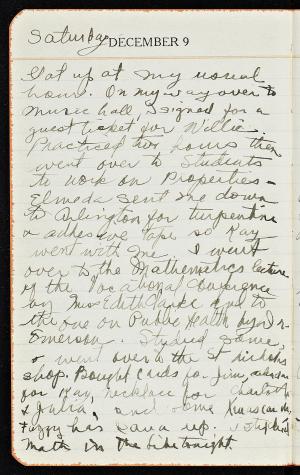 Saturday
DECEMBER 9
Got up at my usual
hour. On my way over to
music hall, I signed for a
guest ticket for Willie.
Practiced two hours then
went over to Students
to work on Properties -
Elmeda sent me down
to Arlington for turpentine
& adhesive tape so Kay
went with me. I went
over to the Mathematics lecture
of the Vocational Conference
by Miss Edith and to
the one on Public Health by Dr.
Emerson. Studied some,
& went over to the St. Nicholas
shop. Bought cards for Jim,
for Kay, necklace for Charlotte
& Julia, and some
Fuzzy has up. I
math in the libe tonight.